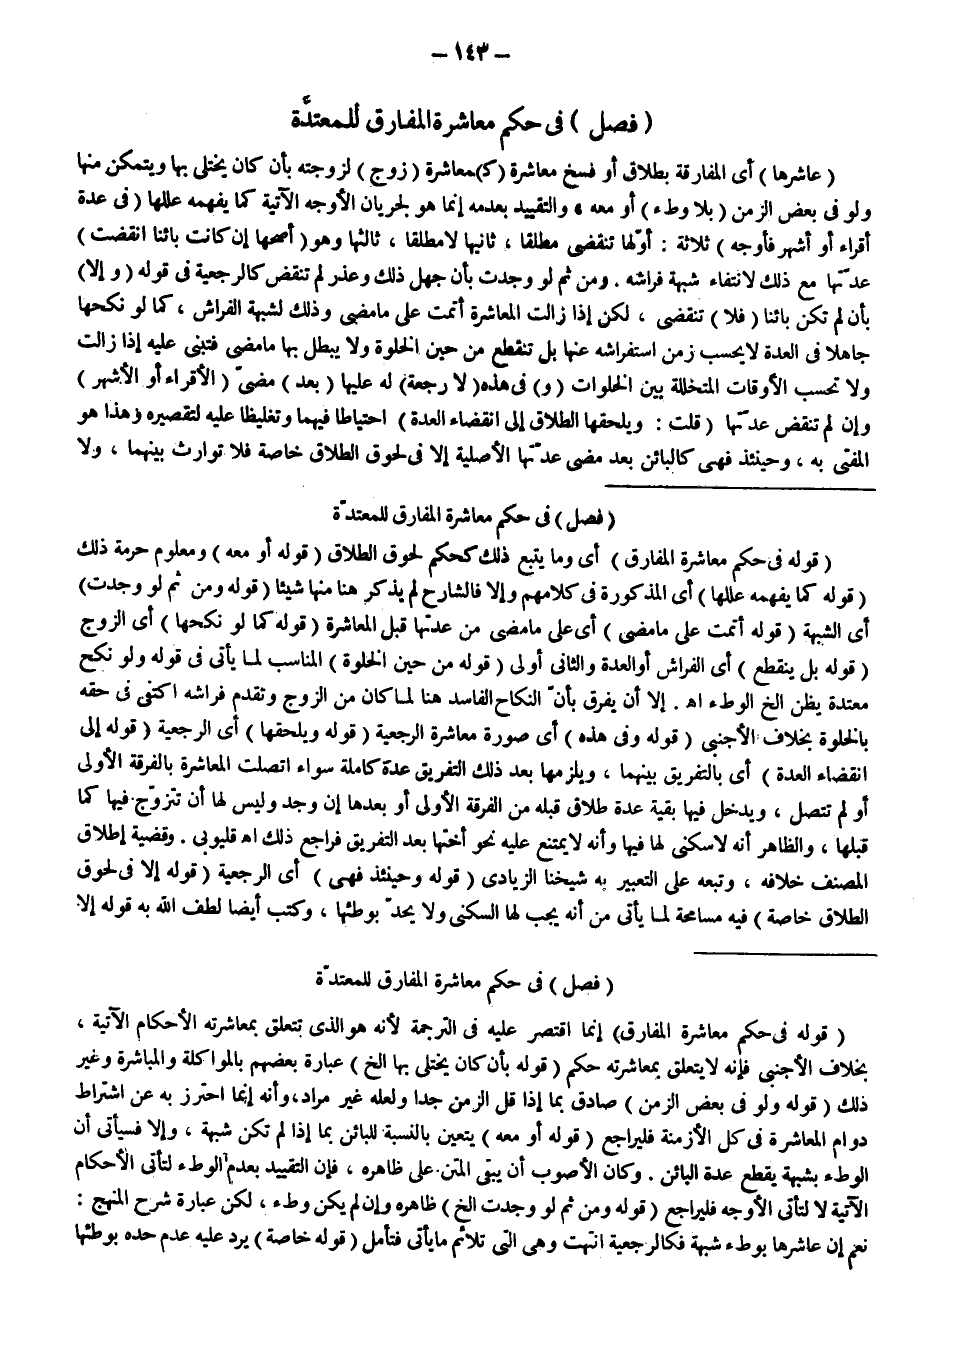 – ١٤٣ –
( فصل ) فى حكم معاشرة المفارق للمعتدَّة
( عاشرها ) أى المفارقة بطلاق أو فسخ معاشرة (ك)معاشرة ( زوج ) لزوجته بأن كان يختلى بها ويتمكن منها
ولو فى بعض الزمن ( بلا وطء ) أو معه ، والتقييد بعدمه إنما هو لجريان الأوجه الآتية كما يفهمه عللها ( فى عدة
أقراء أو أشهر فأوجه ) ثلاثة : أوّلها تنقضى مطلقا ، ثانيها لا مطلقا ، ثالثها وهو( أصحها إن كانت بائنا انقضت )
عدّتها مع ذلك لانتفاء شبهة فراشه . ومن ثم لو وجدت بأن جهل ذلك وعذر لم تنقض كالرجعية فى قوله ( وإلا)
بأن لم تكن بائنا ( فلا ) تنقضى ، لكن إذا زالت المعاشرة أتمت على مامضى وذلك لشبهة الفراش ، كما لو نكحها
جاهلا فى العدة لايحسب زمن استفراشه عنها بل تنقطع من حين الخلوة ولا يبطل بها مامضى فتبنى عليه إذا زالت
ولا تحسب الأوقات المتخللة بين الخلوات ( و) فى هذه( لا رجعة) له عليها ( بعد ) مضىّ ( الأقراء أو الأشهر )
وإن لم تنقض عدّتها ( قلت : ويلحقها الطلاق إلى انقضاء العدة ) احتياطا فيهما وتغليظا عليه لتقصيره وهذا هو
المفتى به ، وحينئذ فهى كالبائن بعد مضى عدّتها الأصلية إلا فى لحوق الطلاق خاصة فلا توارث بينهما ، ولا
( فصل ) فى حكم معاشرة المفارق للمعتدّة
( قوله فى حكم معاشرة المفارق ) أى وما يتبع ذلك كحكم لحوق الطلاق ( قوله أو معه ) ومعلوم حرمة ذلك
( قوله كما يفهمه عللها ) أى المذكورة فى كلامهم وإلا فالشارح لم يذكر هنا منها شيئا ( قوله ومن ثم لو وجدت)
أى الشبهة ( قوله أتمت على مامضى ) أى على مامضى من عدتها قبل المعاشرة ( قوله كما لو نكحها ) أى الزوج
( قوله بل ينقطع ) أى الفراش أو العدة والثانى أولى ( قوله من حين الخلوة ) المناسب لما يأتى فى قوله ولو نكح
معتدة يظن الخ الوطء اه . إلا أن يفرق بأنّ النكاح الفاسد هنا لما كان من الزوج وتقدم فراشه اكتفى فى حقه
بالخلوة بخلاف الأجنبى ( قوله وفى هذه ) أى صورة معاشرة الرجعية ( قوله ويلحقها ) أى الرجعية ( قوله إلى
انقضاء العدة ) أى بالتفريق بينهما ، ويلزمها بعد ذلك التفريق عدة كاملة سواء اتصلت المعاشرة بالفرقة الأولى
أو لم تتصل ، ويدخل فيها بقية عدة طلاق قبله من الفرقة الأولى أو بعدها إن وجد وليس لها أن تتزوّج فيها كما
قبلها ، والظاهر أنه لاسكنى لها فيها وأنه لايمتنع عليه نحو أختها بعد التفريق فراجع ذلك اه قليوبى . وقضية إطلاق
المصنف خلافه ، وتبعه على التعبير به شيخنا الزيادى ( قوله وحينئذ فهى ) أى الرجعية ( قوله إلا فى لحوق
الطلاق خاصة ) فيه مسامحة لما يأتى من أنه يجب لها السكنى ولا يحدّ بوطئها ، وكتب أيضا لطف الله به قوله إلا
( فصل ) فى حكم معاشرة المفارق للمعتدّة
( قوله فى حكم معاشرة المفارق) إنما اقتصر عليه فى الترجمة لأنه هو الذى تتعلق بمعاشرته الأحكام الآتية ،
بخلاف الأجنبى فإنه لايتعلق بمعاشرته حكم ( قوله بأن كان يختلى بها الخ ) عبارة بعضهم بالمواكلة والمباشرة وغير
ذلك ( قوله ولو فى بعض الزمن ) صادق بما إذا قل الزمن جدا ولعله غير مراد، وأنه إنما احترز به عن اشتراط
دوام المعاشرة فى كل الأزمنة فليراجع ( قوله أو معه ) يتعين بالنسبة للبائن بما إذا لم تكن شبهة ، وإلا فسيأتى أن
الوطء بشبهة يقطع عدة البائن . وكان الأصوب أن يبقى المتن على ظاهره ، فإن التقييد بعدم الوطء لتأتى الأحكام
الآتية لا لتأتى الأوجه فليراجع ( قوله ومن ثم لو وجدت الخ ) ظاهره وإن لم يكن وطء ، لكن عبارة شرح المنهج :
نعم إن عاشرها بوطء شبهة فكالرجعية انتهت وهى التى تلائم مايأتى فتأمل ( قوله خاصة ) يرد عليه عدم حده بوطئها